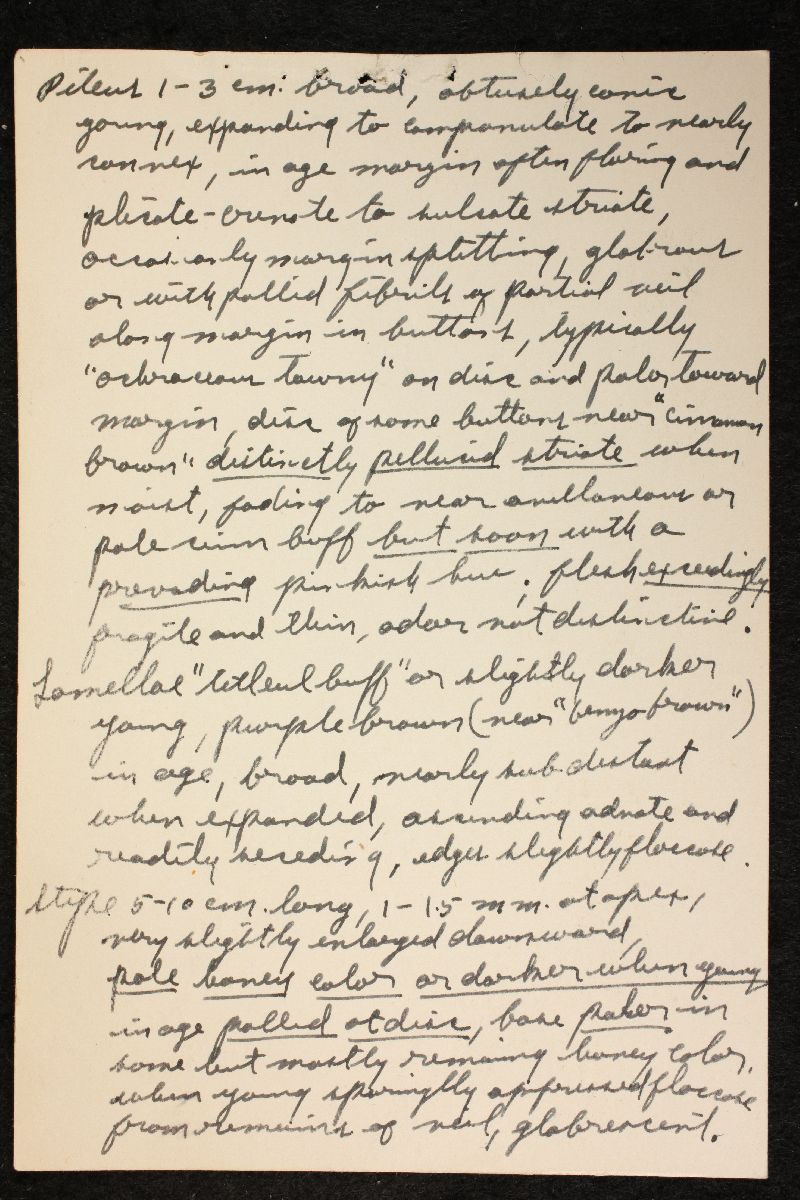 Pileus 1-3 cm. broad, obtusely conic
young, expanding to campanulate to nearly
convex, in age margin often flaring and
plicate-crenate to sulcate striate,
occasionally margin splitting, glabrous
or with pallid fibrils of partial veil
along margin in buttons, typically
"ochraceous tawny" on disc and paler toward
margin, disc of some buttons near "cinnamon
brown" distinctly pellucid striate when
moist, fading to near avellaneous or
pale cinn buff but soon with a
prevading pinkish hue; flesh exceedingly
fragile and thin, odor not distinctive.
Lamellae "tilleul buff" or slightly darker
young, purple brown (near "benzo brown")
in age, broad, nearly subdistant
when expanded, ascending adnate and
readily seceding, edges slightly floccose.
Stipe 5-10 cm. long, 1-1.5 mm. at apex,
very slightly enlarged downward,
pale honey color or darker when young
in age pallid at disc, base paler in
some but mostly remaining honey color,
when young sparingly appressed floccose
from remains of veil, glabrescent.